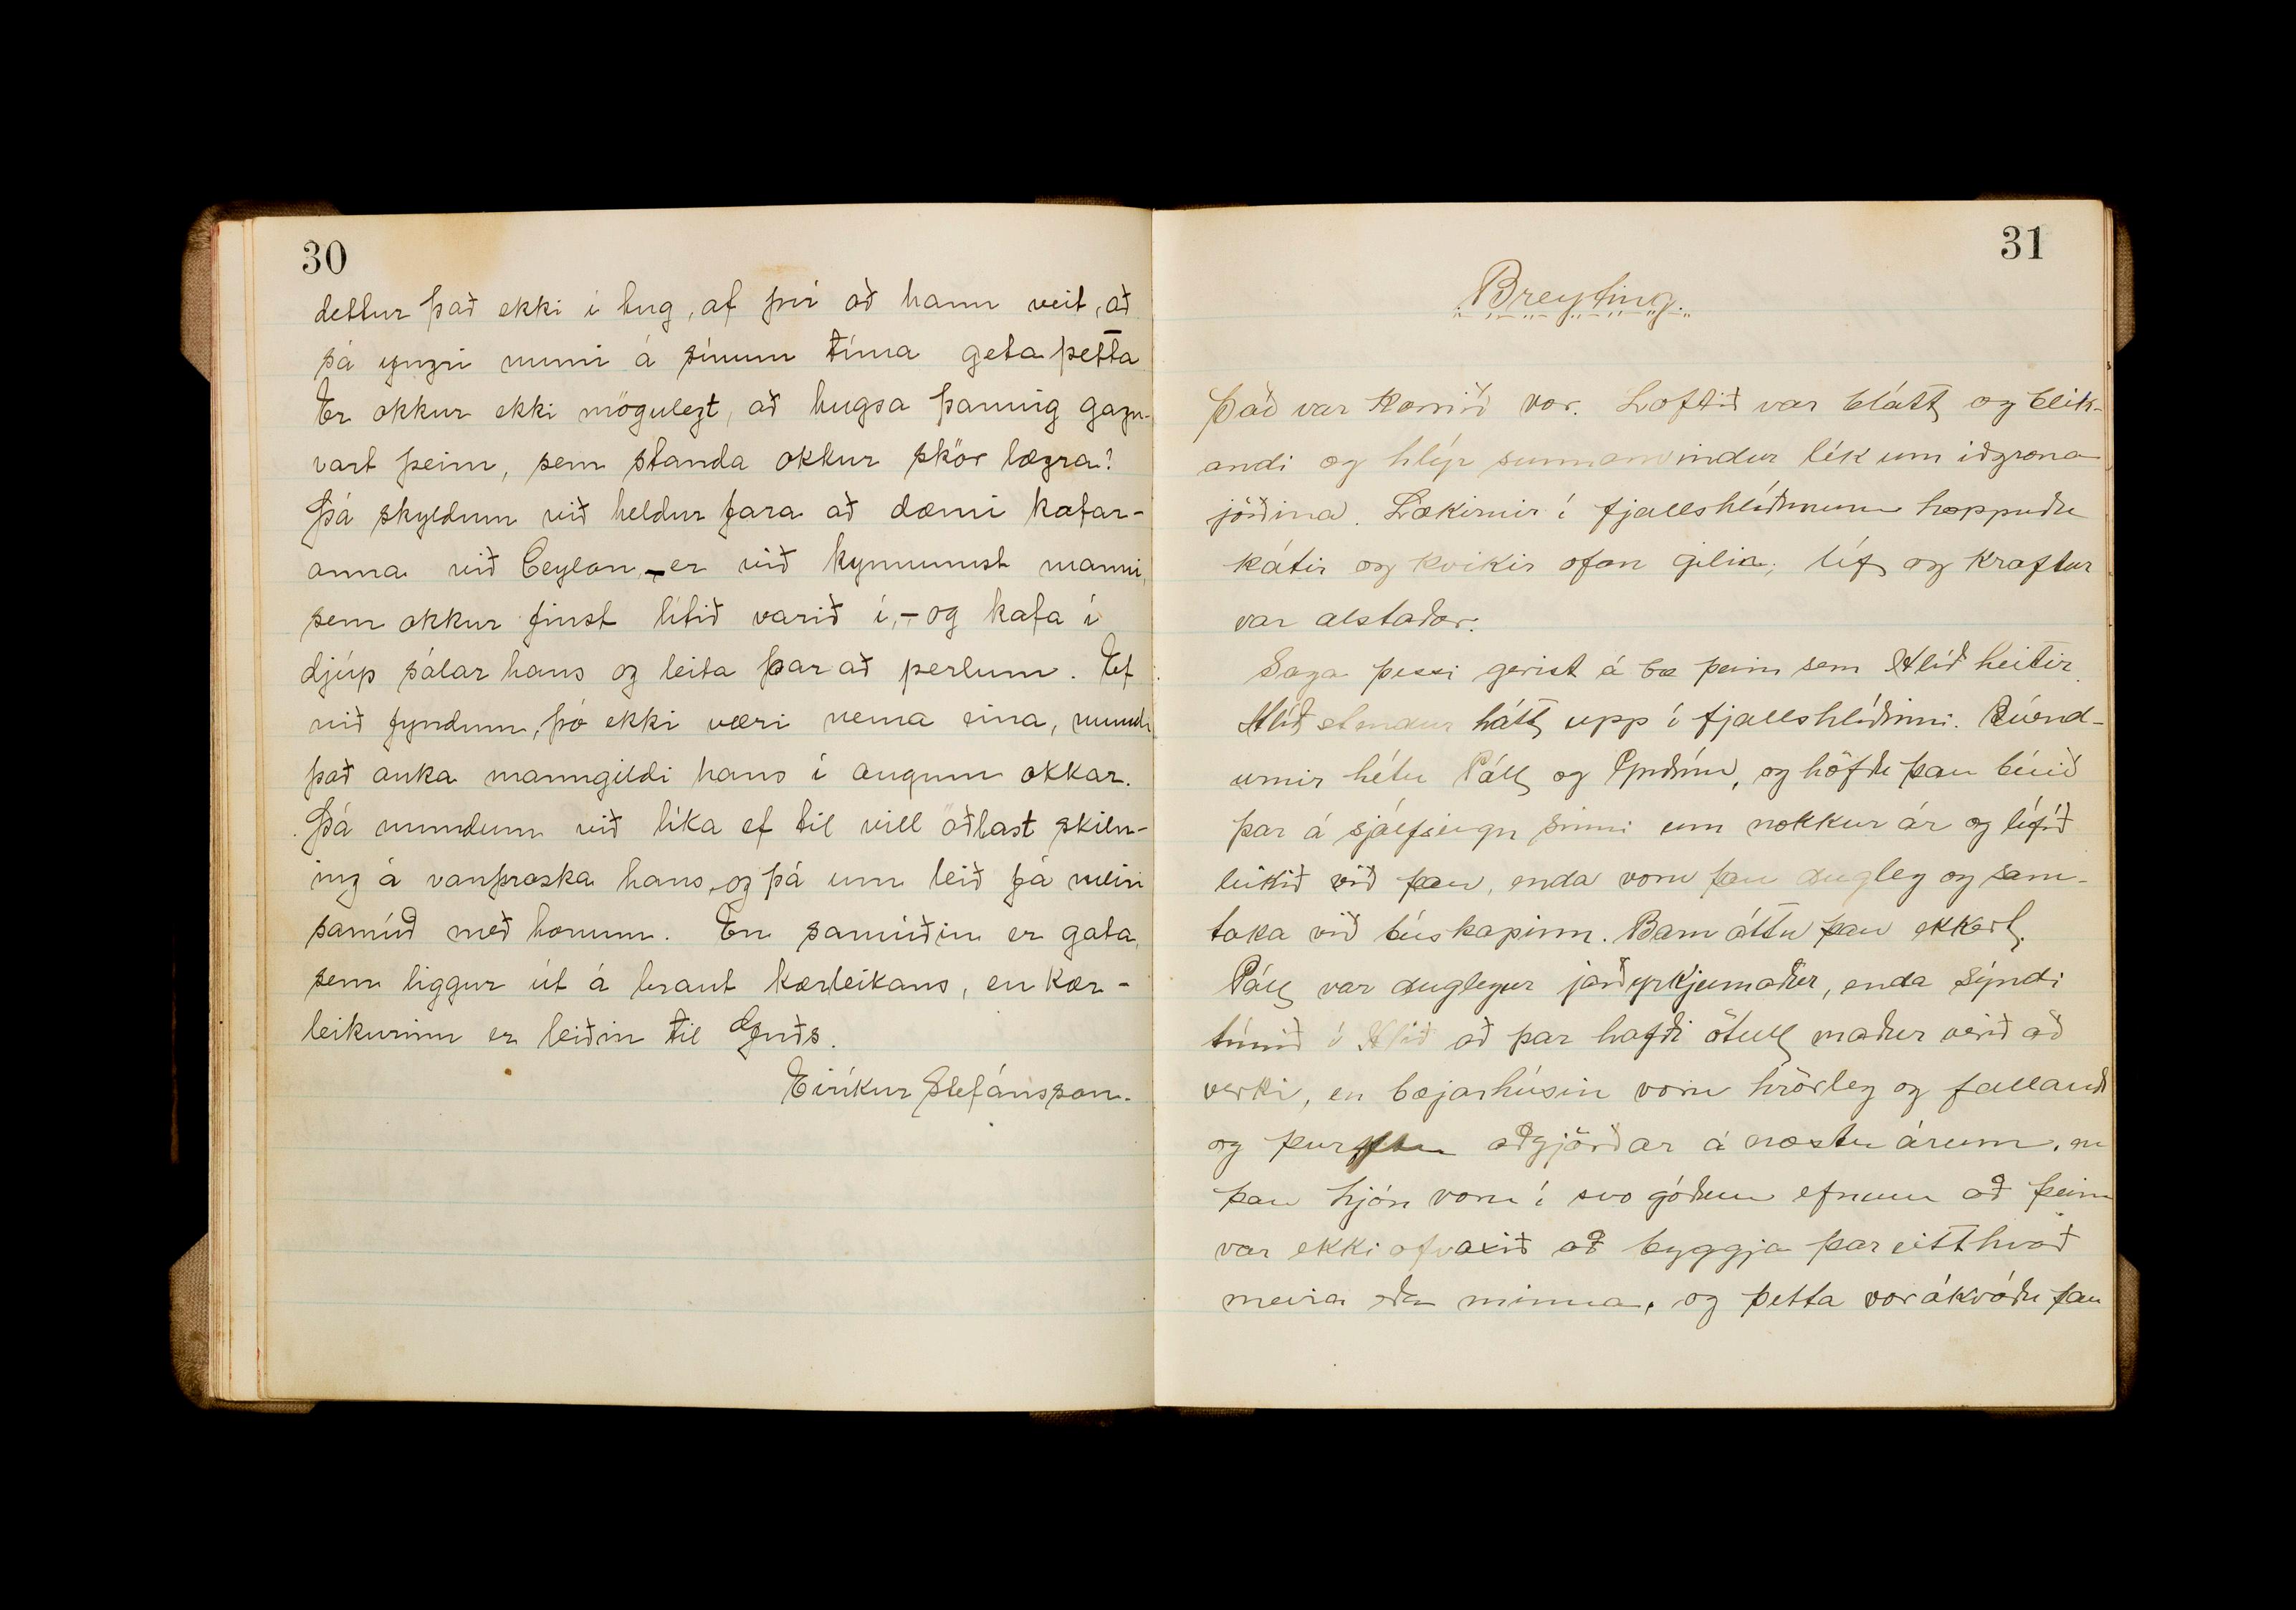 30
dettur það ekki í hug, af því að hann veit, að
sá yngri muni á sínum tíma geta þetta
Er okkur ekki mögulegt, að hugsa þannig gagn-
vart þeim, sem standa okkur skör lægra?
Þá skyldum við heldur fara að dæmi kafar-
anna við Ceylon, - er við kynnumst manni,
sem okkur finst lítið varið í, - og kafa í
djúp sálar hans og leita þar að perlum. Ef
við fyndum, þó ekki væri nema eina, mundi
það auka manngildi hans í augum okkar.
Þá mundum við líka ef til vill öðlast skiln-
ing á vanþroska hans, og þá um leið fá meiri
samúð með honum. En samúðin er gata,
sem liggur út á braut kærleikans, en kær-
leikurinn er leiðin til Guðs.
Eiríkur Stefánsson.
31
Breyting.
Það var komið vor. Loftið var blátt og blik-
andi og hlýr sunnanvindur lék um iðgrœna
jörðina. Lækirnir í fjallshlíðunum hoppuðu
kátir og kvikir ofan gilin; líf og kraftur
var alstaðar.
Saga þessi gerist á bæ þeim sem Hlíð heitir.
Hlíð stendur hátt upp í fjallshlíðinni. Búend-
urnir hétu Páll og Guðrún, og höfðu þau búið
þar á sjálfseign sinni um nokkur ár og lífið
leikið við þau, enda voru þau dugleg og sam-
taka við búskapinn. Barn áttu þau ekkert.
Páll var duglegur jarðyrkjumaður, enda sýndi
túnið í Hlíð að þar hafði ötull maður verið að
verki, en bæjarhúsin voru hrörleg og fallandi
og þurftu aðgjörðar á næstu árum, en
þau hjón voru í svo góðum efnum að þeim
var ekki ofvaxið að byggja þar eitthvað
meira eða minna, og þetta vor ákváðu þau